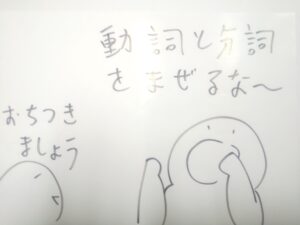 動詞と分詞
をまぜるな〜
おちつき
ましょう